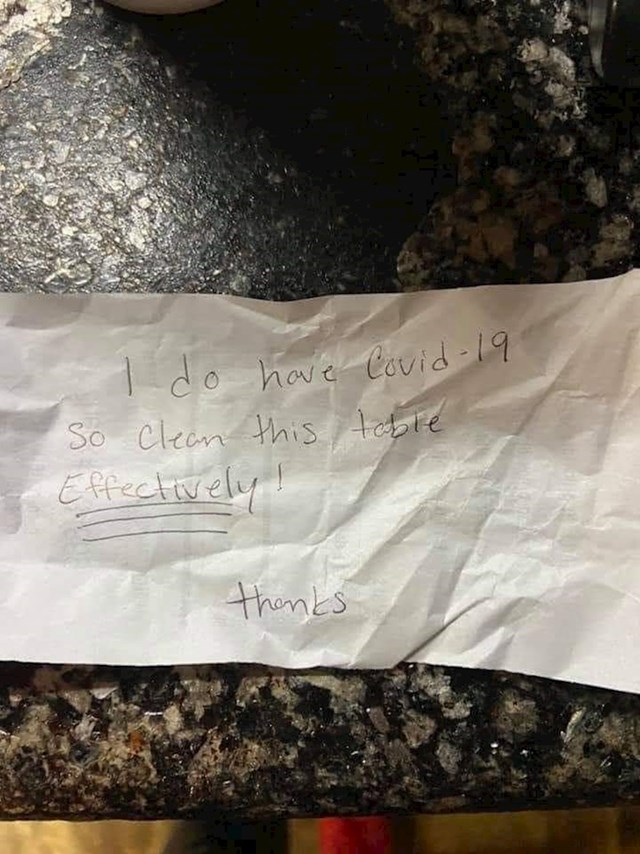 I do have Covid-19
So Clean this table
Effectively!
thanks